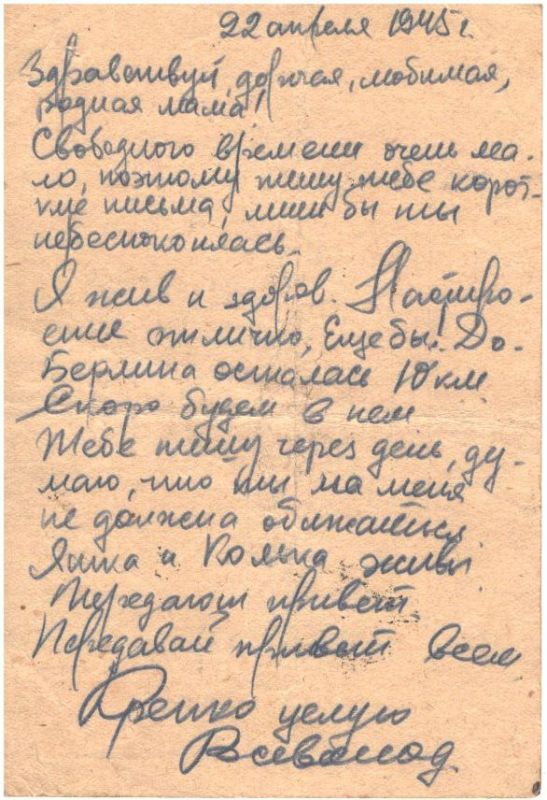 22 апреля 1945 г.
Здравствуй, дорогая, любимая,
родная мама!
Свободного времени очень ма-
ло, поэтому пишу тебе корот-
кие письма, лишь бы ты
небеспокоилась.
Я жив и здоров. Настро-
ение отлично, Еще бы! До
Берлина осталась 10 км
Скоро будем в нем
Тебе пишу через день, ду-
маю, что ты на меня
не должна обижаться
Яшка и Колька живы
Передают привет
Передавай привет всем
Крепко целую
Всеволод.